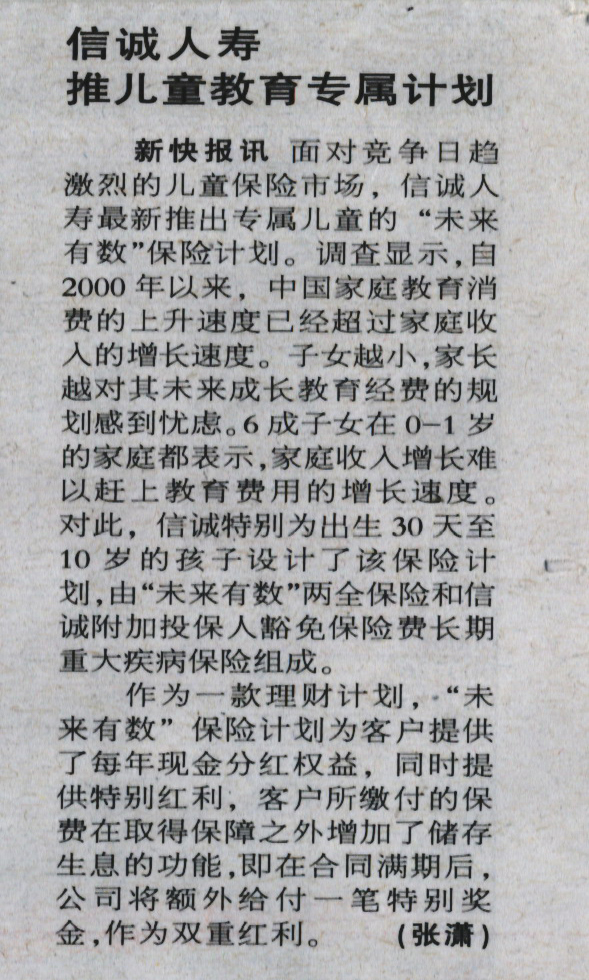 信诚人寿
推儿童教育专属计划
新快报讯 面对竞争日趋
激烈的儿童保险市场，信诚人
寿最新推出专属儿童的“未来
有数”保险计划。调查显示，自
2000 年以来，中国家庭教育消
费的上升速度已经超过家庭收
入的增长速度。子女越小，家长
越对其未来成长教育经费的规
划感到忧虑。6 成子女在 0-1 岁
的家庭都表示，家庭收入增长难
以赶上教育费用的增长速度。
对此，信诚特别为出生 30 天至
10 岁的孩子设计了该保险计
划，由“未来有数”两全保险和信
诚附加投保人豁免保险费长期
重大疾病保险组成。
作为一款理财计划，“未
来有数”保险计划为客户提供
了每年现金分红权益，同时提
供特别红利，客户所缴付的保
费在取得保障之外增加了储存
生息的功能，即在合同满期后，
公司将额外给付一笔特别奖
金，作为双重红利。 （张潇）